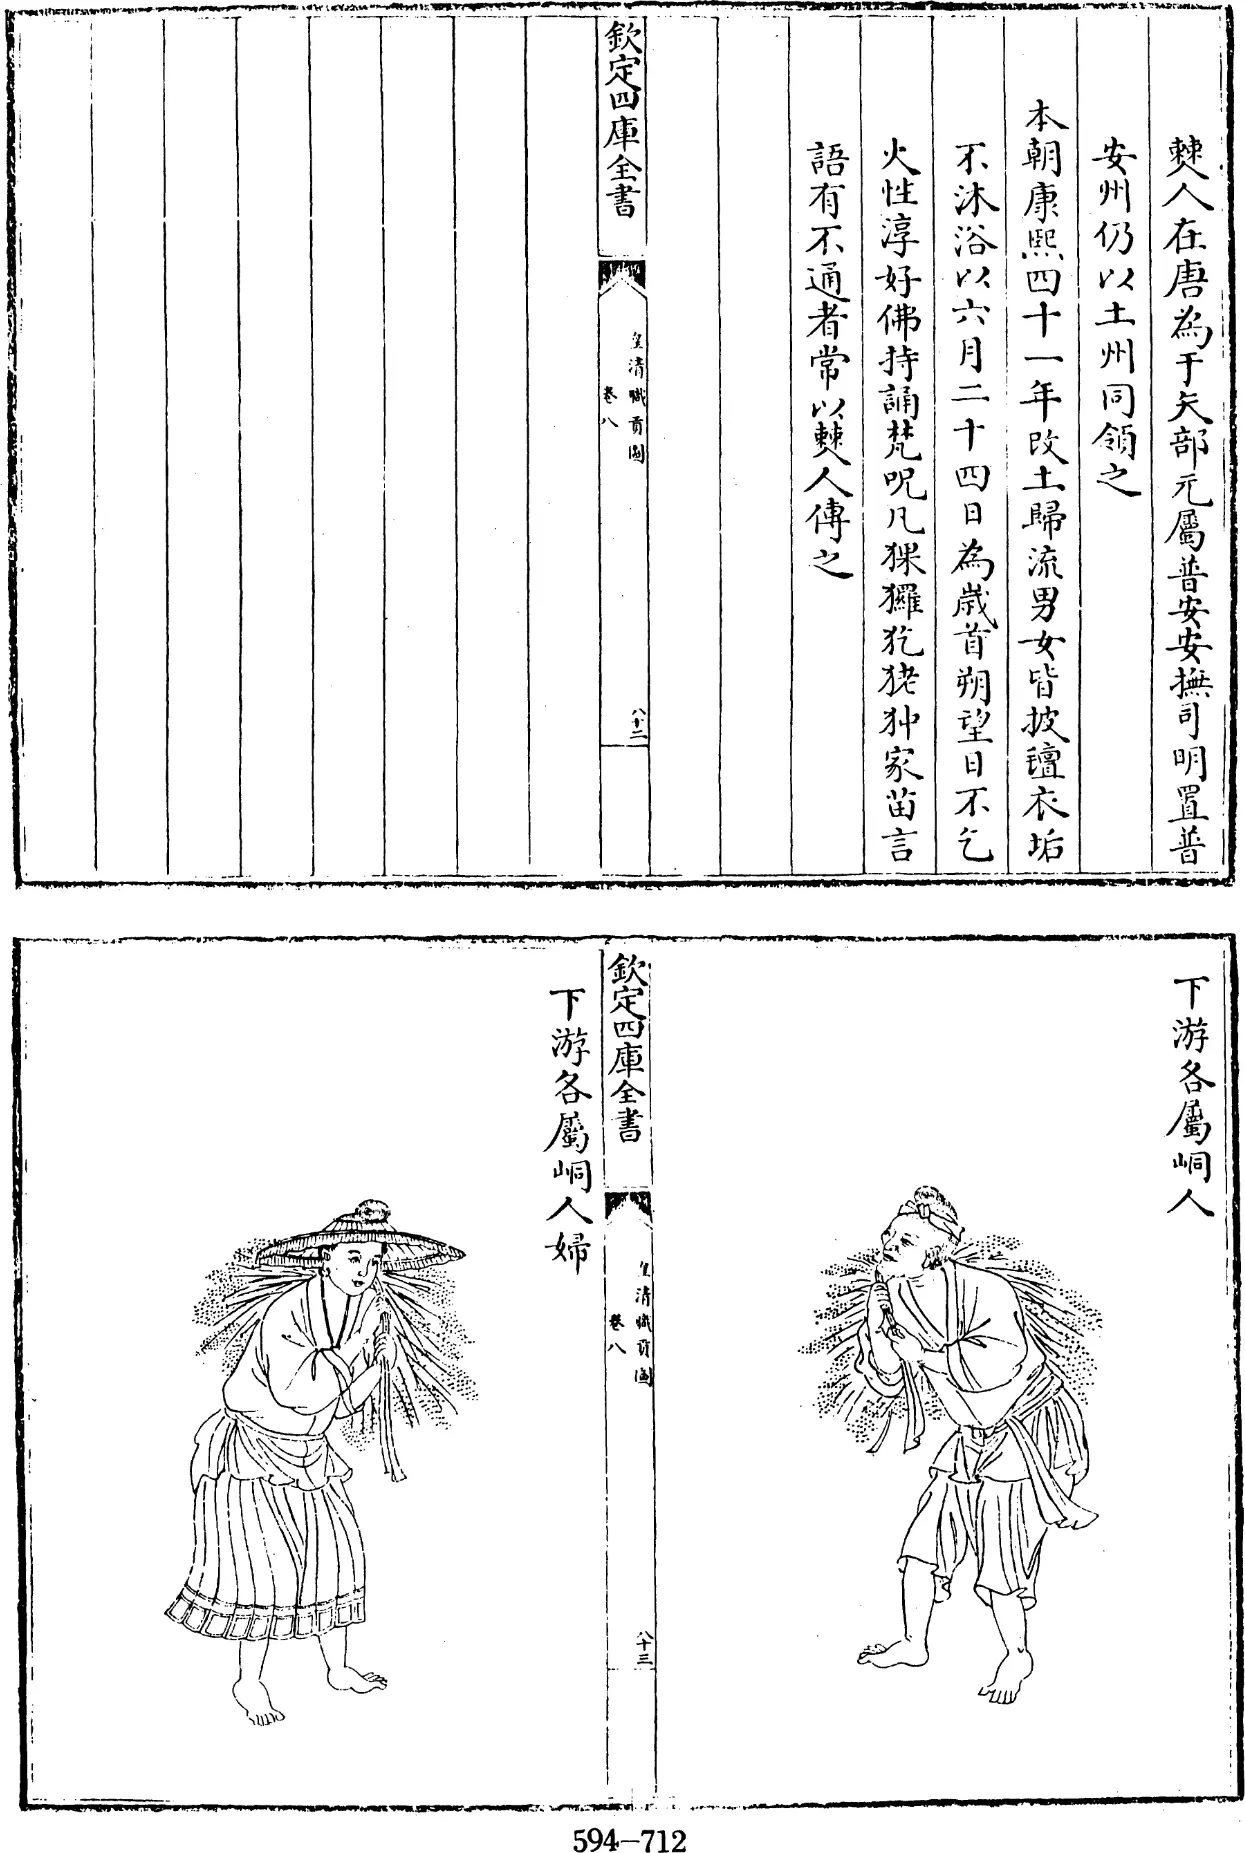 僰人在唐為于矢部元屬普安安撫司明置普
安州仍以土州同領之
本朝康熙四十一年改土歸流男女皆披氊衣垢
不沐浴以六月二十四日為歲首朔望日不乞
火性淳好佛持誦梵呪凡猓玀犵狫狆家苗言
語有不通者常以僰人傳之
欽定四庫全書
皇清職貢圖
卷八
八十二
下游各屬峒人
欽定四庫全書
皇清職貢圖
卷八
八十三
下游各屬峒人婦
594-712